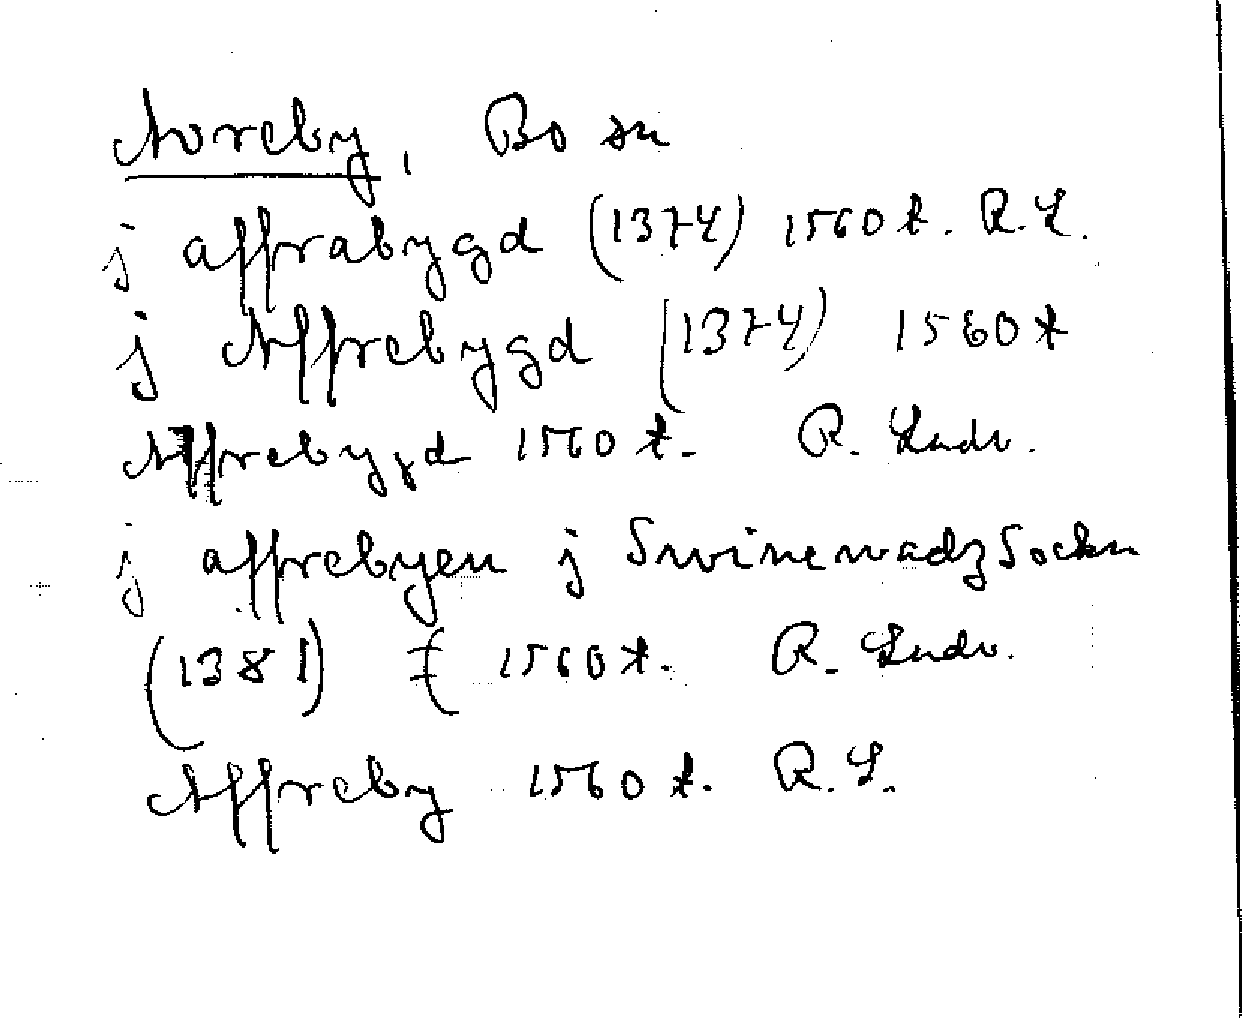 Aoreby, Bo sn
j affrabygd (1374) 1560 t. R. L.
j Affrebygd (1374) 1560 t
Affrebygd 1560 t. R. Ludv.
j affrebyen j Swinewadz Sockn
(1381) 1560 t. R. Ludv.
Affreby 1560 t. R. L.